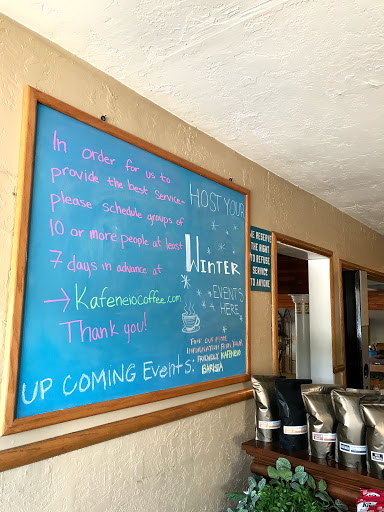 In order for us to
provide the best service-
please schedule groups of
10 or more people at least
7 days in advance at
→KafeneioCoffee.com
Thank you!
HOST YOUR
WINTER
EVENTS
HERE
FIND OUT MORE
INFORMATION FROM YOUR
FRIENDLY KAFENEIO
BARISTA
UP COMING EVENTS:
WE RESERVE
THE RIGHT
TO REFUSE
SERVICE
TO ANYONE